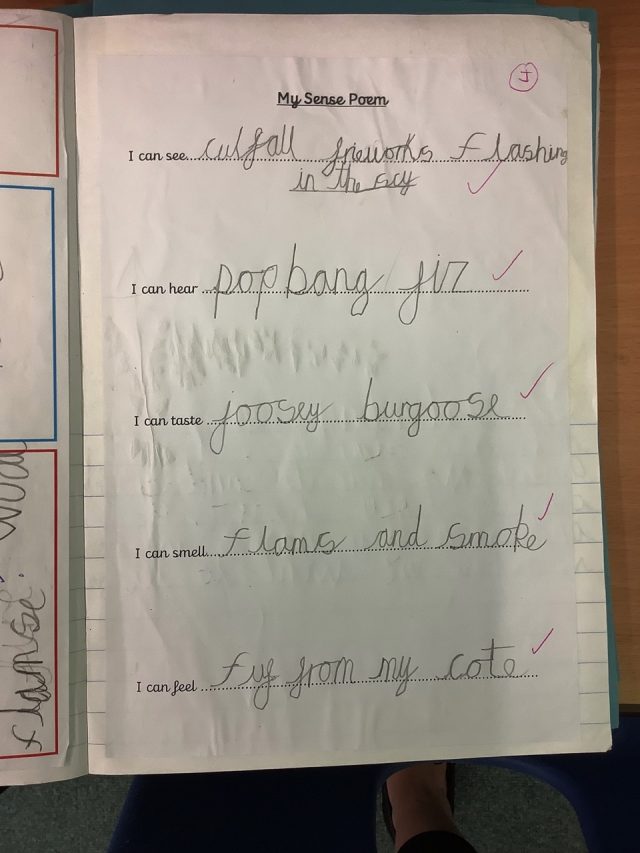 J
My Sense Poem
I can see culfall frieworks flashing
in the scy
I can hear pop bang fiz
I can taste joosey burgoose
I can smell flams and smoke
I can feel fuf from my cote